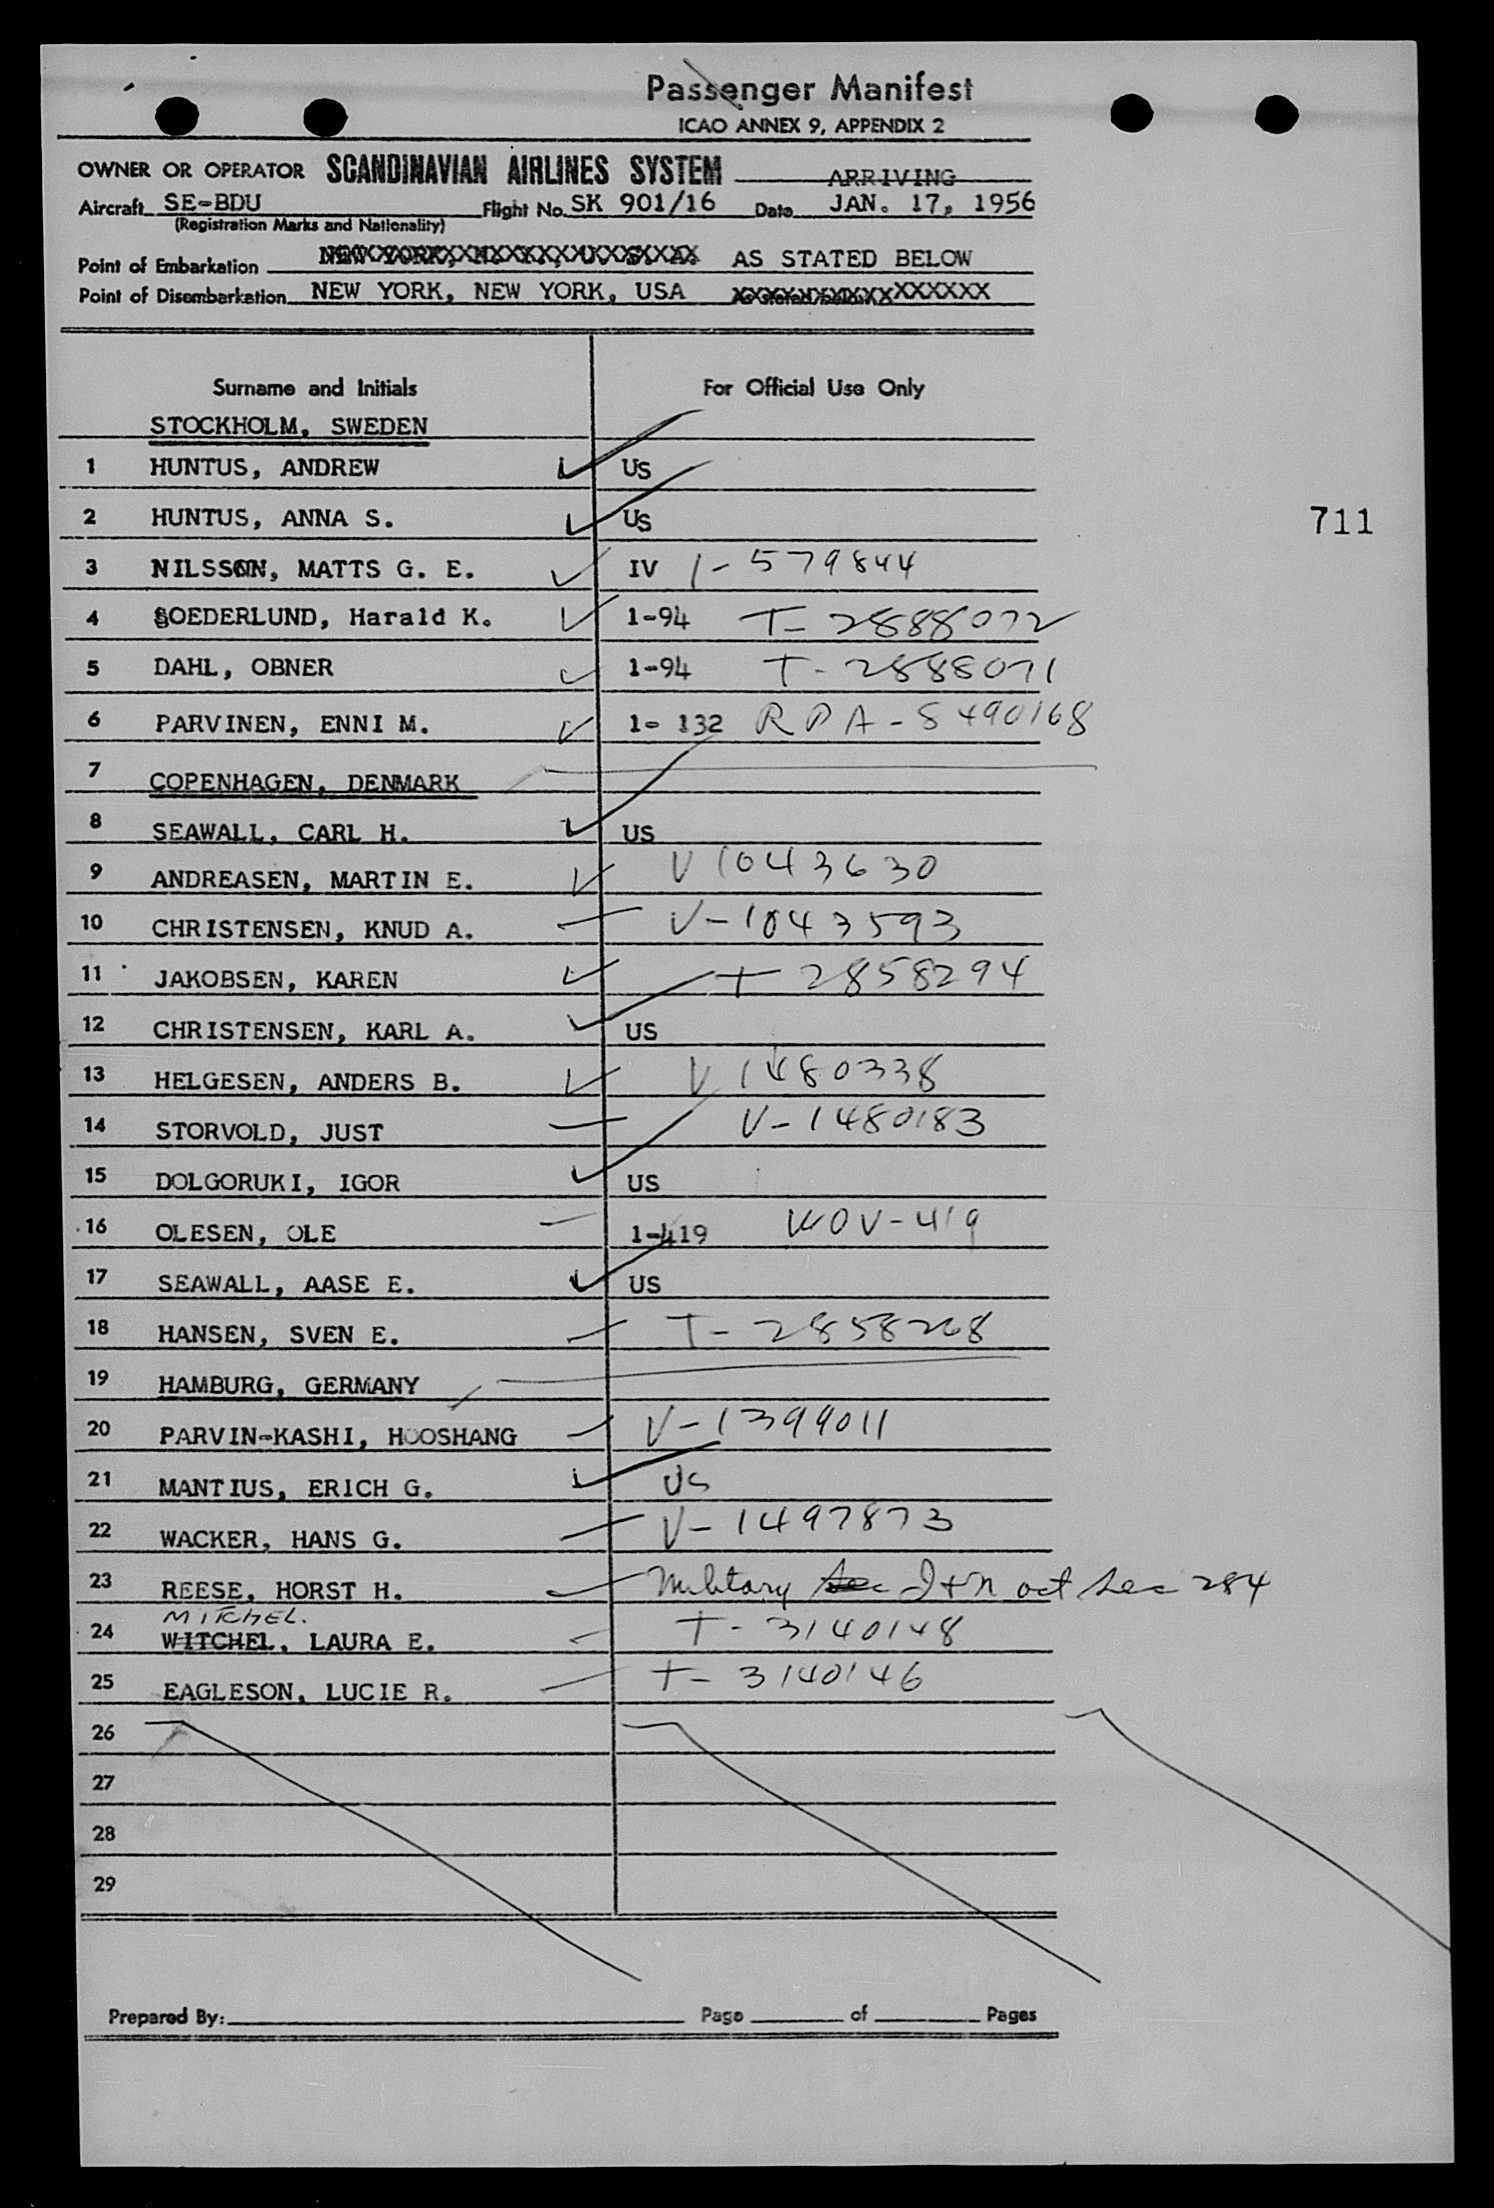 Passenger Manifest
ICAO ANNEX 9, APPENDIX 2
OWNER OR OPERATOR SCANDINAVIAN AIRLINES SYSTEM ARRIVING
Aircraft SE-BDU Flight No. SK 901/16 Date JAN. 17, 1956
(Registration Marks and Nationality)
Point of Embarkation AS STATED BELOW
Point of Disembarkation NEW YORK, NEW YORK, USA
Surname and Initials For Official Use Only
STOCKHOLM, SWEDEN
1 HUNTUS, ANDREW US
711
2 HUNTUS, ANNA S. US
3 NILSSON, MATTS G. E. IV 1-579844
4 SOEDERLUND, Harald K. 1-94 T-2888072
5 DAHL, OBNER 1-94 T-2888071
6 PARVINEN, ENNI M. 1-132 RPA-5490168
7 COPENHAGEN, DENMARK
8 SEAWALL, CARL H. US
9 ANDREASEN, MARTIN E. V1043630
10 CHRISTENSEN, KNUD A. V-1043593
11 JAKOBSEN, KAREN T 2858294
12 CHRISTENSEN, KARL A. US
13 HELGESEN, ANDERS B. V 1480338
14 STORVOLD, JUST V-1480183
15 DOLGORUKI, IGOR US
16 OLESEN, OLE 1-419 WOV-419
17 SEAWALL, AASE E. US
18 HANSEN, SVEN E. T-2858268
19 HAMBURG, GERMANY
20 PARVIN-KASHI, HOOSHANG V-1399011
21 MANTIUS, ERICH G. US
22 WACKER, HANS G. V-1497873
23 REESE, HORST H. Military Sec I+N act Sec 284
MITCHEL.
24 WITCHEL, LAURA E. T-3140148
25 EAGLESON, LUCIE R. T-3140146
26
27
28
29
Prepared By: Page of Pages